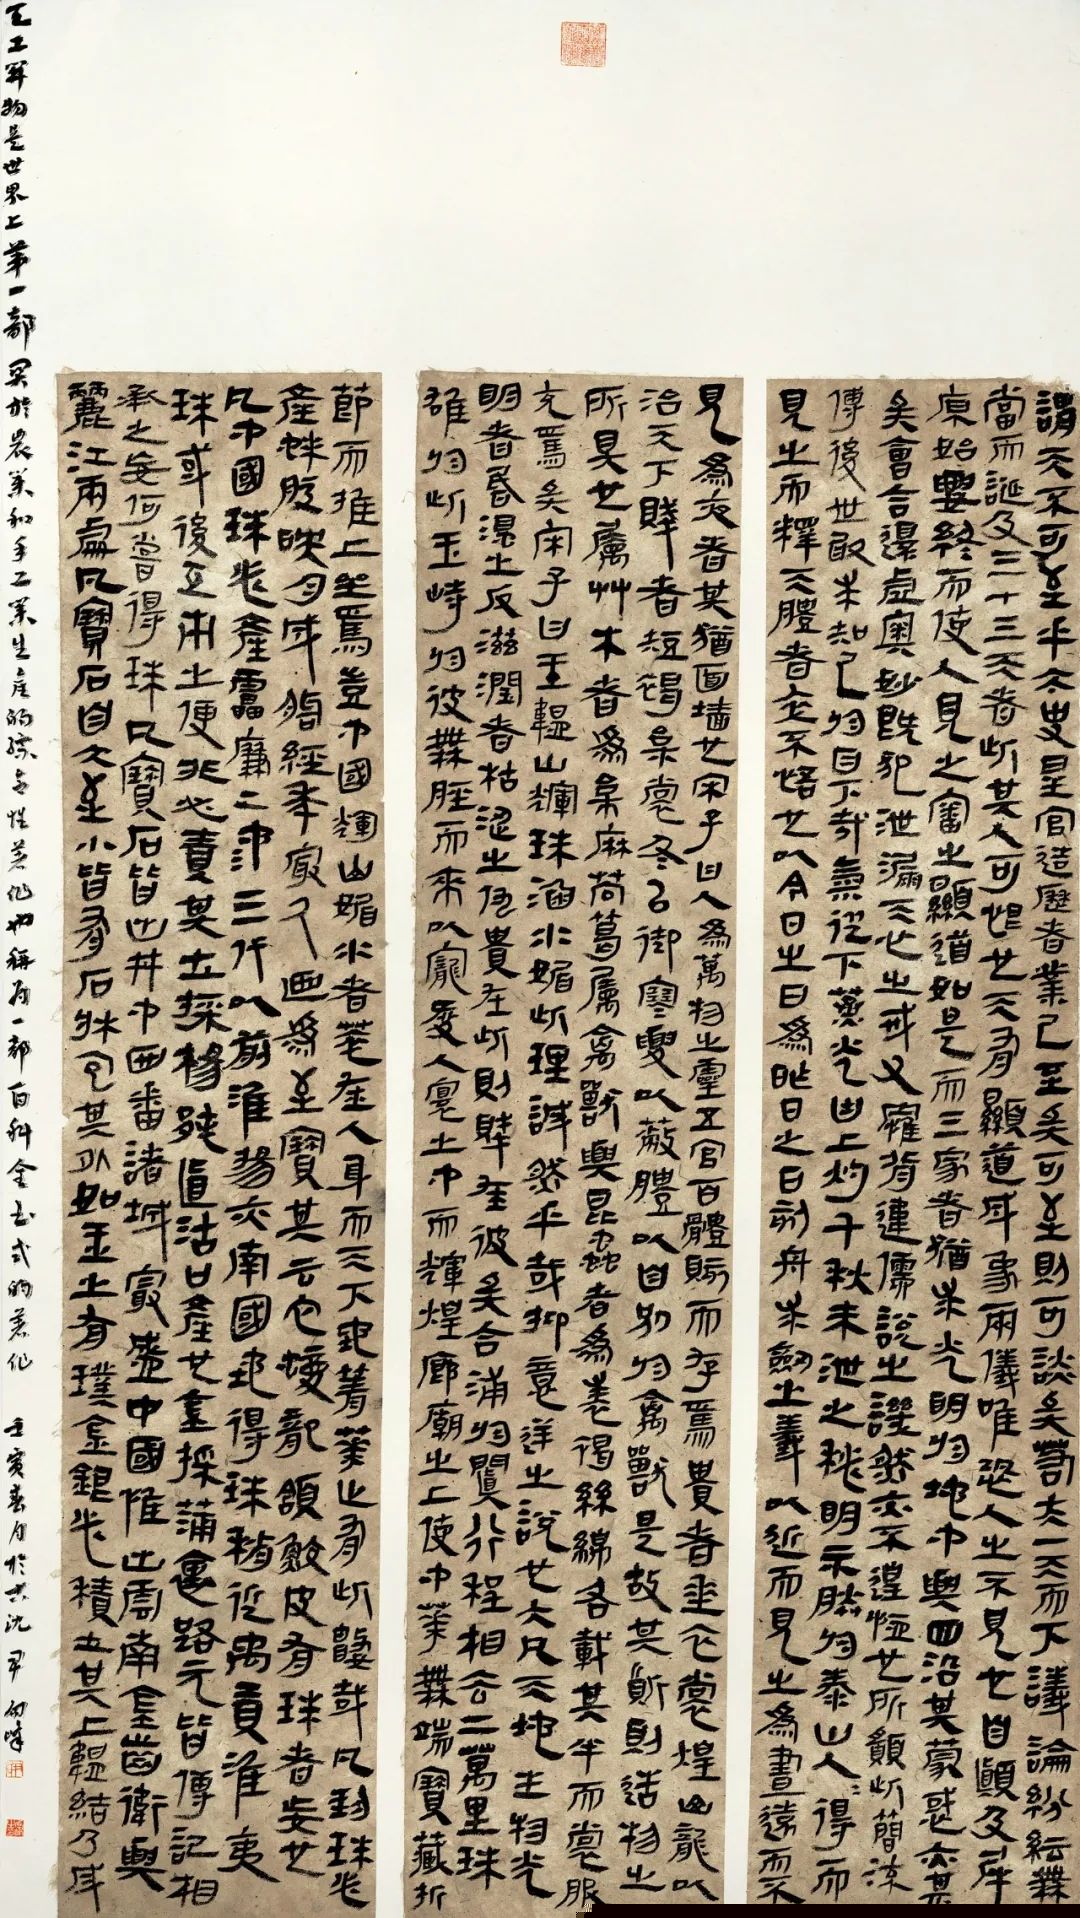 謂天不可至乎太史星官造歷者業已至矣可至則可談矣若夫一天而下議論紛紜無
當而誕及三十三天者此其人可惜也天有顯道成象兩儀唯恐人之不見也自顛及犀
原始要終而使人見之審之顯道如是而三家者猶求光明於地中與四沿其蒙惑亦甚
矣會合還虛奧妙既犯泄漏天心之戒又罹背違儒說之譏然亦不遑恤也所願此簡流
傳後世敢求知己於目下哉氣從下蒸光由上灼千秋未泄之秘明示朕於泰山人人得而
見之而釋天體者卒不悟也以今日之日為昨日之日刻舟求劍之義以近而見之為晝遠而不
見為夜者其猶面墻也宋子曰人為萬物之靈五官百體賅而存焉貴者垂衣裳煌山龍以
治天下賤者短褐枲裳冬以御寒夏以蔽體以自別於禽獸是故其質則造物之
所具也屬艸木者為枲麻苘葛屬禽獸與昆蟲者為裘褐絲綿各載其半而裳服
充焉矣宋子曰玉韞山輝珠涵水媚此理誠然乎哉抑意逆之說也大凡天地生物光
明者昏混之反滋潤者枯澀之仇貴在此則賤在彼矣合浦於闐行程相去二萬里珠
雄於此玉峙於彼無脛而來以寵愛人寰之中而輝煌廊廟之上使中華無端寶藏折
節而推上坐焉豈中國輝山媚水者萃在人耳而天下地菁華止有此數哉凡珍珠必
產蚌腹映月成胎經年最久迺為至寶其云它蝮龍頷鮫皮有珠者妄也
凡中國珠必產雷廉二池三代以前淮揚亦南國地得珠稍近禹貢淮夷
珠或後互市之便非必責其土採楊村直沽口產也金採蒲裏路元皆傳記相
承之妄何嘗得珠凡寶石皆出井中西番諸域最盛中國惟出雲南金齒衛與
麗江兩處凡寶石自大至小皆有石牀包其外如玉之有璞金銀必積土其上韞結乃成
天工開物是世界上第一部關於農業和手工業生產的綜合性著作也稱為一部百科全書式的著作 壬寅春月於古沈 尹向峰